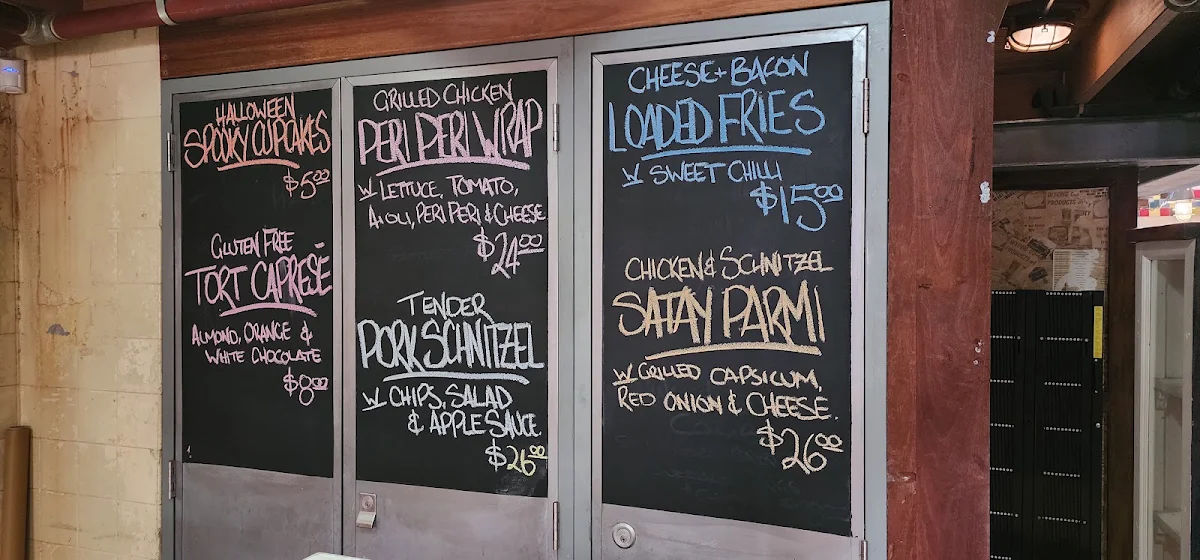 HALLOWEEN
SPOOKY CUPCAKES
$5.00
GLUTEN FREE
TORT CAPRESE
ALMOND, ORANGE &
WHITE CHOCOLATE
$8.00
GRILLED CHICKEN
PERI PERI WRAP
W LETTUCE, TOMATO,
AIOLI, PERI PERI & CHEESE
$24.00
TENDER
PORK SCHNITZEL
W CHIPS, SALAD
& APPLE SAUCE.
$26.00
CHEESE + BACON
LOADED FRIES
W SWEET CHILLI
$15.00
CHICKEN & SCHNITZEL
SATAY PARMI
W GRILLED CAPSICUM,
RED ONION & CHEESE.
$26.00
PRODUCTS